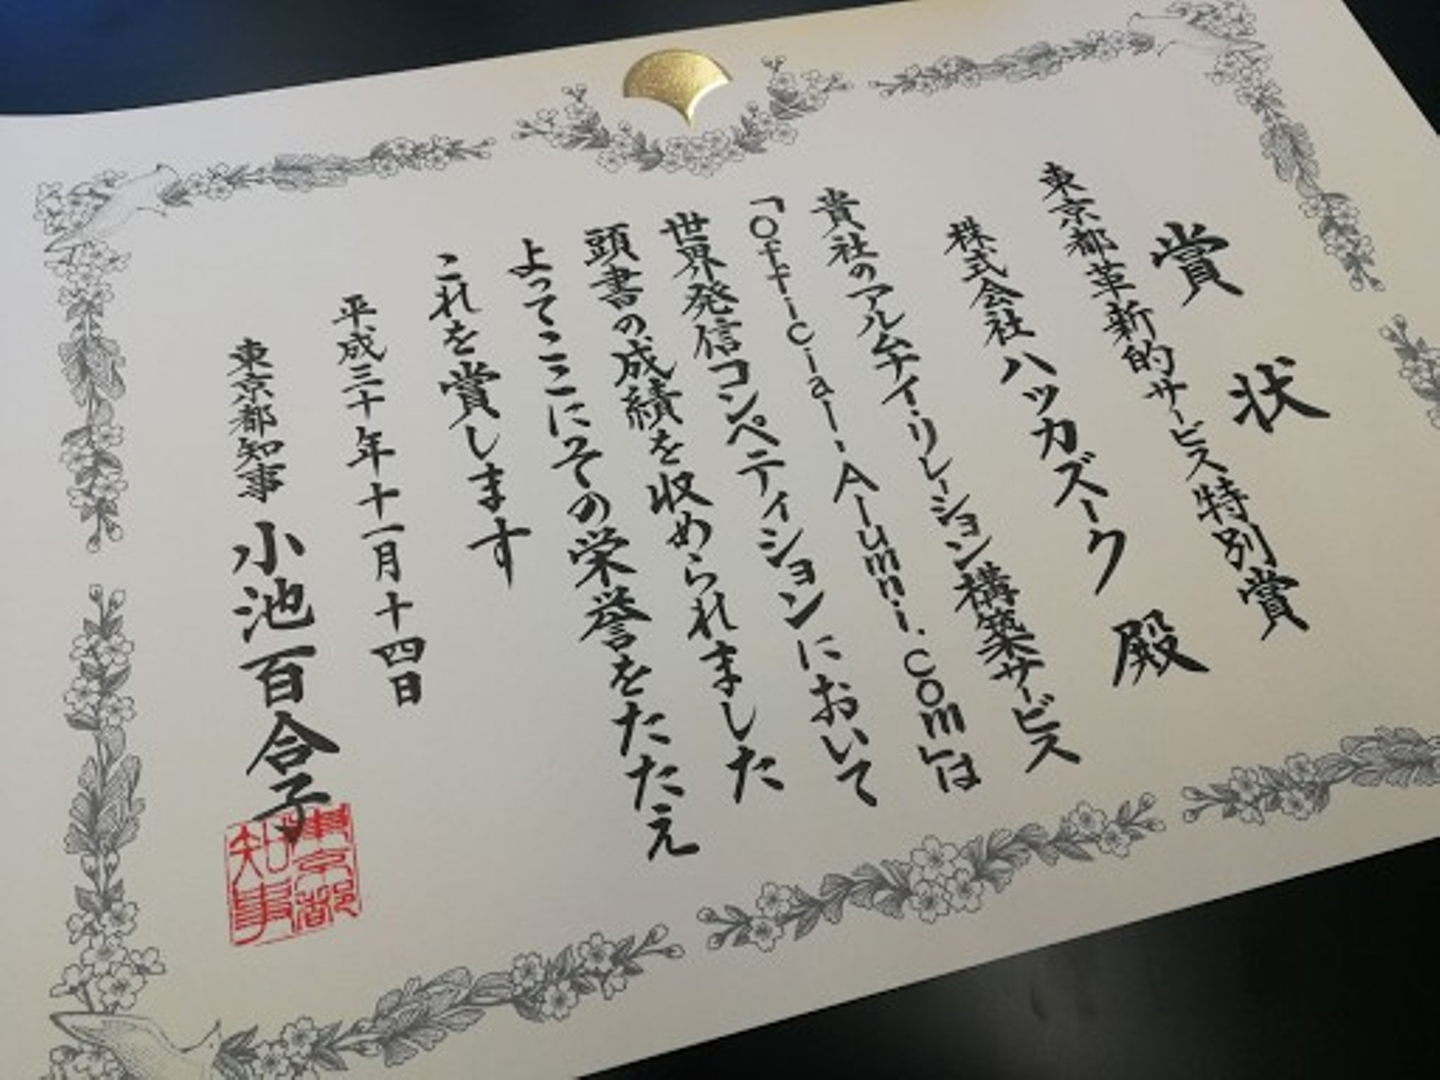 賞状
東京都革新的サービス特別賞
株式会社ハッカズーク 殿
貴社のアルムナイ・リレーション構築サービス
「Official-Alumni.com」は
世界発信コンペティションにおいて
頭書の成績を収められました
よってここにその栄誉をたたえ
これを賞します
平成三十年十一月十四日
東京都知事 小池百合子
東京都知事